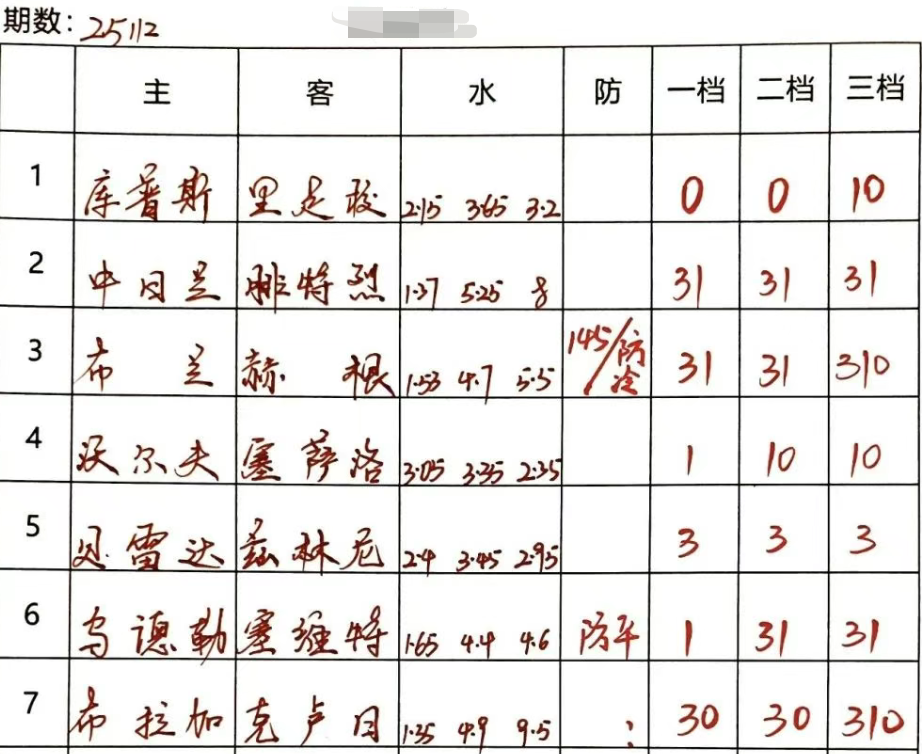 期数: 25112
主 客 水 防 一档 二档 三档
1 库普斯 里连校 2.15 3.65 3.2 0 0 10
2 中日兰 腓特烈 1.37 5.25 8 31 31 31
3 布兰 赫根 1.53 4.7 5.5 145/防冷 31 31 310
4 沃尔夫 塞萨洛 3.05 3.35 2.35 1 10 10
5 贝雷达 兹林尼 2.4 3.45 2.95 3 3 3
6 乌德勒 塞维特 1.65 4.4 4.6 防平 1 31 31
7 布拉加 克卢日 1.35 4.9 9.5 : 30 30 310